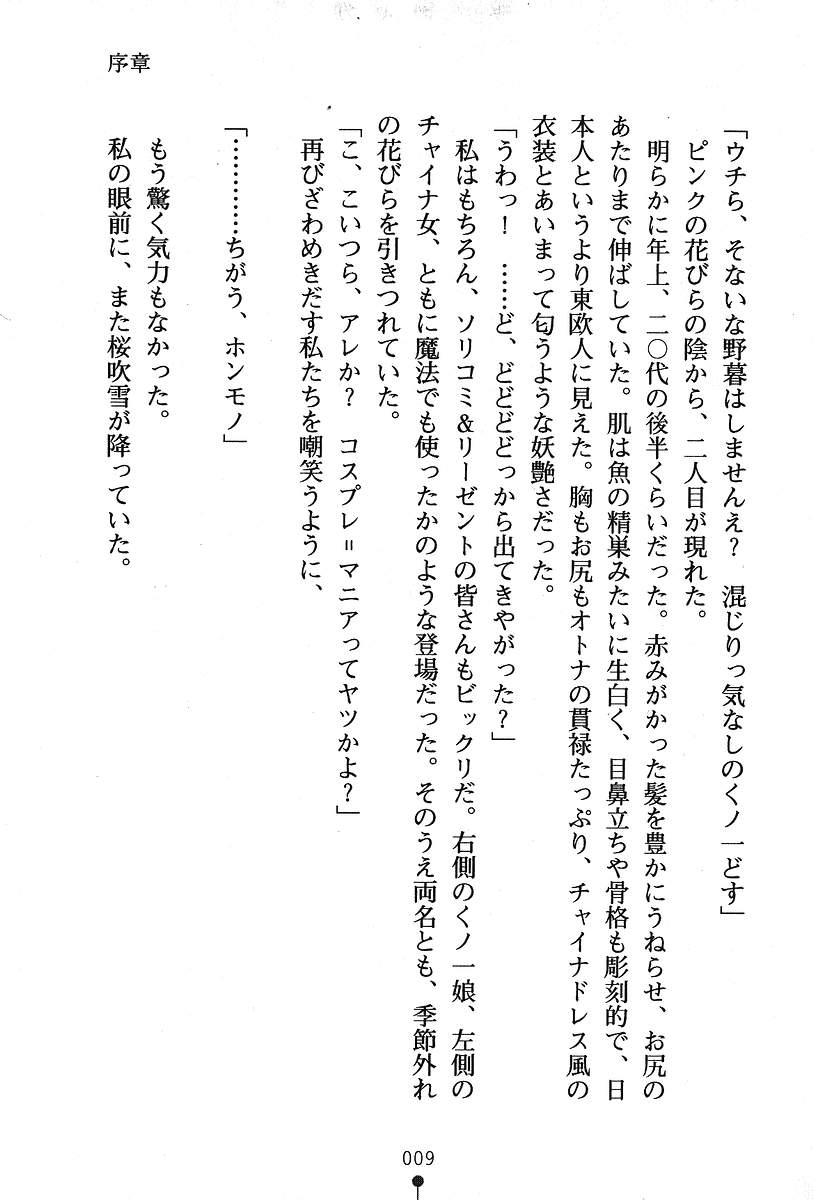 序章
「ウチら、そないな野暮はしませんえ？　混じりっ気なしのくノ一どす」
ピンクの花びらの陰から、二人目が現れた。
明らかに年上、二〇代の後半くらいだった。赤みがかった髪を豊かにうねらせ、お尻の
あたりまで伸ばしていた。肌は魚の精巣みたいに生白く、目鼻立ちや骨格も彫刻的で、日
本人というより東欧人に見えた。胸もお尻もオトナの貫禄たっぷり、チャイナドレス風の
衣装とあいまって匂うような妖艶さだった。
「うわっ！　……ど、どどどどっから出てきやがった？」
私はもちろん、ソリコミ＆リーゼントの皆さんもビックリだ。右側のくノ一娘、左側の
チャイナ女、ともに魔法でも使ったかのような登場だった。そのうえ両名とも、季節外れ
の花びらを引きつれていた。
「こ、こいつら、アレか？　コスプレ＝マニアってヤツかよ？」
再びざわめきだす私たちを嘲笑うように、
「…………ちがう、ホンモノ」
もう驚く気力もなかった。
私の眼前に、また桜吹雪が降っていた。
009